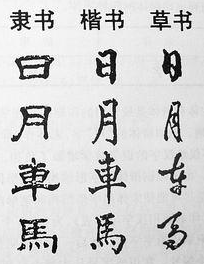 隶书 楷书 草书
日 日 日
月 月 月
車 車 车
馬 馬 马